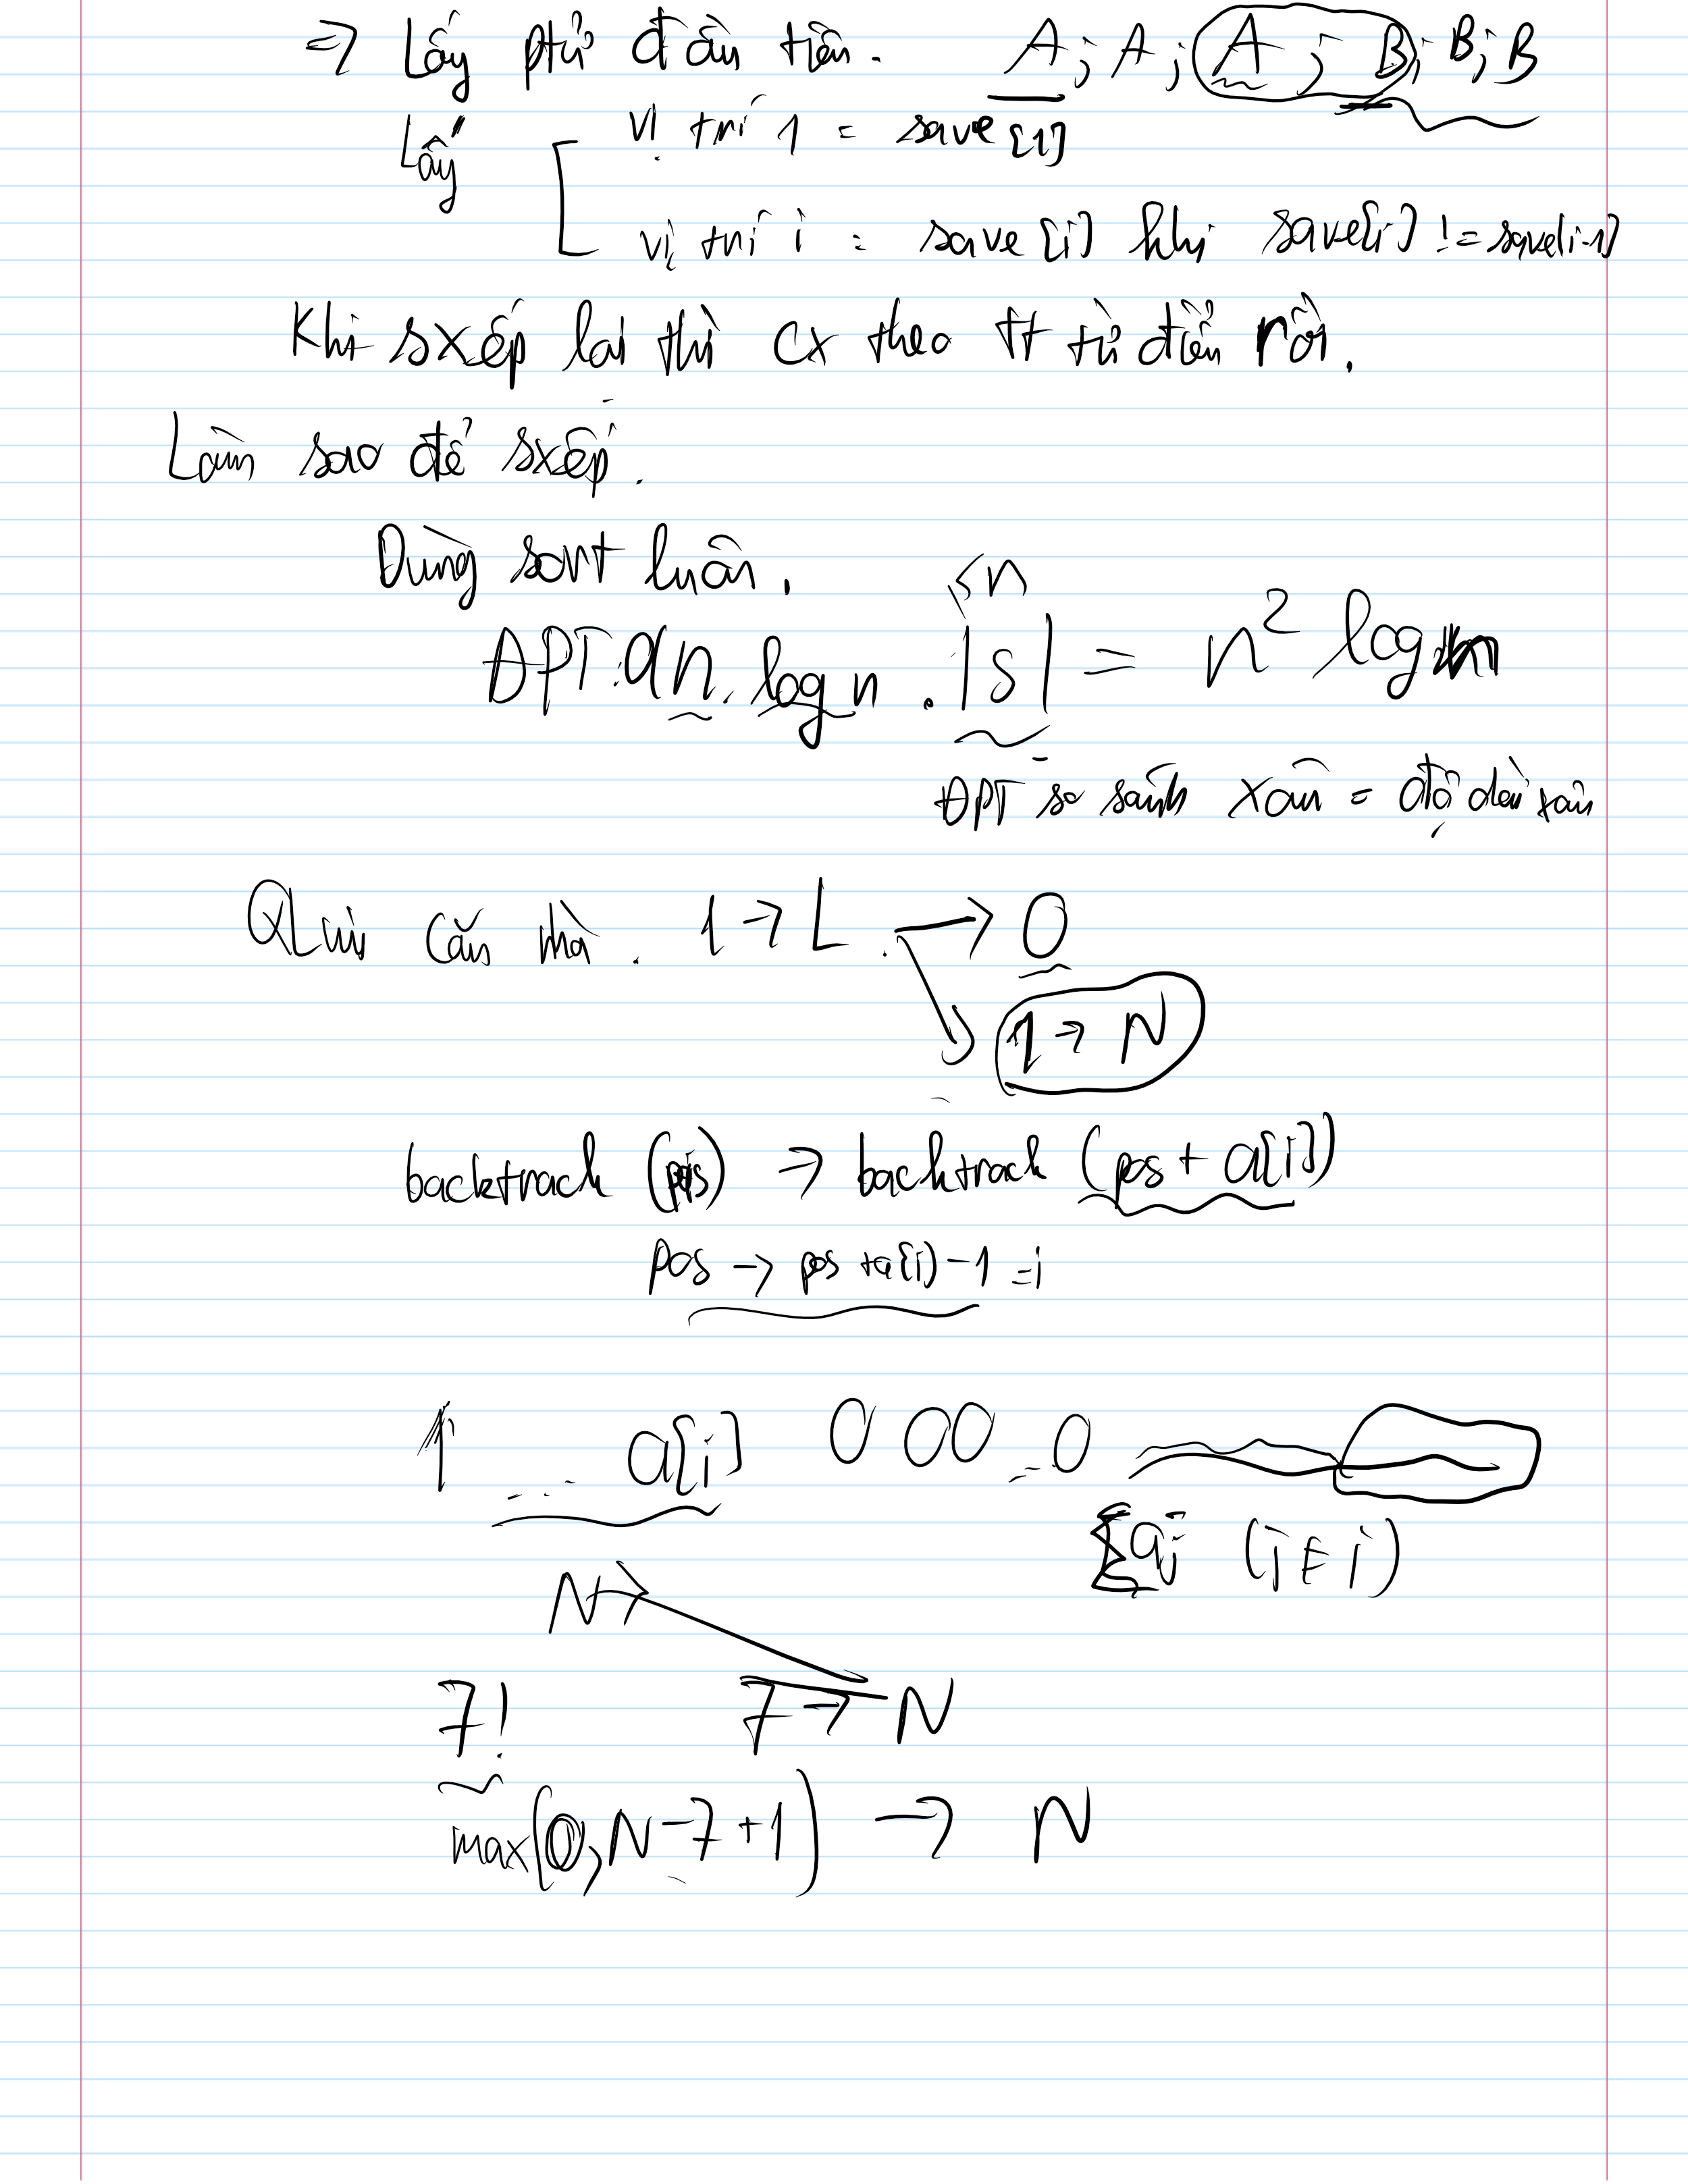 => Lấy ptử đầu tiên. A; A; A; B; B; B
Lấy
vị trí 1 = save[1]
vị trí i = save[i] khi save[i] != save[i-1]
Khi sxếp lại thì cx theo tt từ điển rồi.
Làm sao để sxếp.
Dùng sort luôn.
≤n
ĐPT: O(n. log n . |s| = n² log n
ĐPT so sánh xâu = độ dài xâu
Qui căn nhà. 1 → L. → 0
1 → N
backtrack (pos) → backtrack (pos + a[i])
pos → pos + a[i] - 1 = i
1 ... a[i] 0 0 0 ... 0
Σaj (j ∈ i)
N
7! 7 → N
max(0, N - 7 + 1) → N